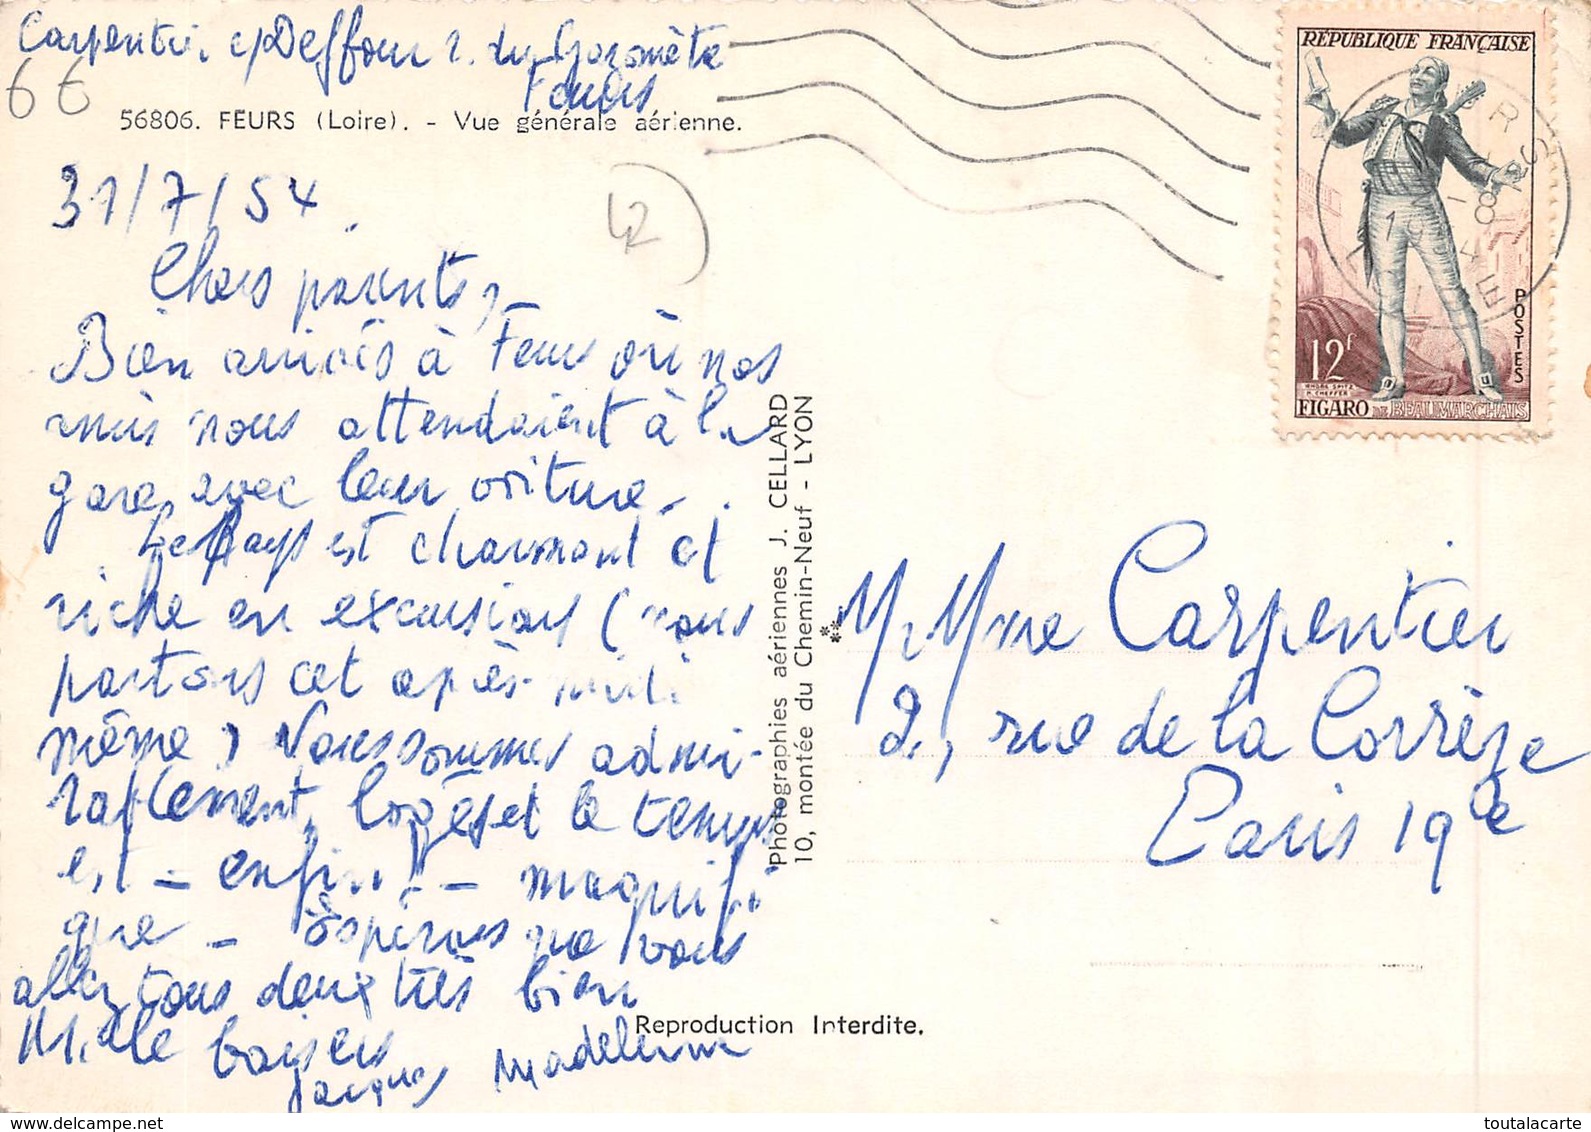 Carpentier c/Deffour r. du Gazomètre
Feurs
66
56806. FEURS (Loire). - Vue générale aérienne.
31/7/54.
42
Chers parents,
Bien arrivés à Feurs où nos
amis nous attendaient à la
gare avec leur voiture.
Le Pays est charmant et
riche en excursions (nous
partons cet après-midi
même) Nous sommes admi-
rablement logés et le temps
est - enfin! - magnifi
que - Espérons que vous
allez tous deux très bien
Mille baisers
Jacques Madeleine
Photographies aériennes J. CELLARD
10, montée du Chemin-Neuf - LYON
Reproduction Interdite.
RÉPUBLIQUE FRANÇAISE
POSTES
12f
FIGARO DE BEAUMARCHAIS
M. Mme Carpentier
2, rue de la Corrèze
Paris 19e
delcampe.net
toutalacarte